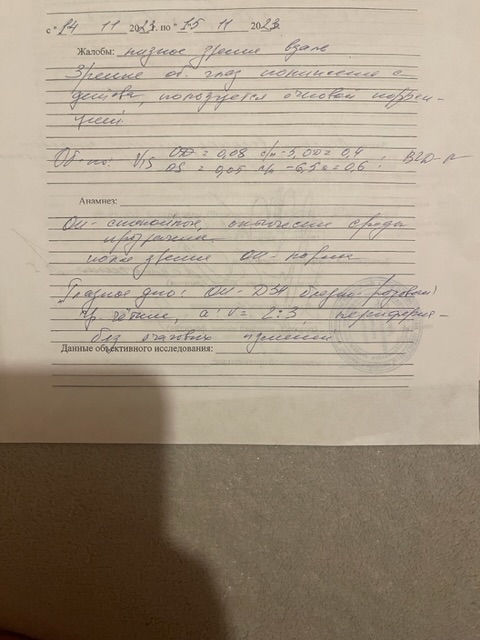 с " 14 11 2023г. по " 15 11 2023г.
Жалобы: низкое зрение вдаль
Зрение об. глаз понижение с
детства, пользуется очковой коррек-
цией
Об-но: Vis OD = 0,08 с/к -5,0D = 0,4
OS = 0,05 с/к -6,5D = 0,6 ;
Анамнез:
OU - спокойные, оптические среды
прозрачны.
поле зрения OU - норма
Глазное дно: OU - ДЗН бледно-розовый
гр. чёткие, a:v = 2:3 периферия -
без очаговых изменений
Данные объективного исследования: